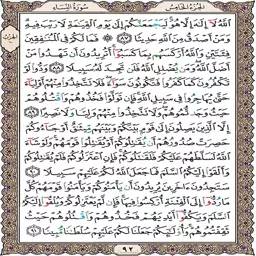 الجزء الخامس
سورة النساء
الله لا إله إلا هو ليجمعنكم إلى يوم القيمة لا ريب فيه
ومن أصدق من الله حديثا ٨٧ فما لكم في المنفقين
فئتين والله أركسهم بما كسبوا أتريدون أن تهدوا من
أضل الله ومن يضلل الله فلن تجد له سبيلا ٨٨ ودوا لو
تكفرون كما كفروا فتكونون سواء فلا تتخذوا منهم أولياء
حتى يهاجروا في سبيل الله فإن تولوا فخذوهم واقتلوهم
حيث وجدتموهم ولا تتخذوا منهم وليا ولا نصيرا ٨٩
إلا الذين يصلون إلى قوم بينكم وبينهم ميثق أو جاءوكم
حصرت صدورهم أن يقتلوكم أو يقتلوا قومهم ولو شاء
الله لسلطهم عليكم فلقتلوكم فإن اعتزلوكم فلم يقتلوكم
وألقوا إليكم السلم فما جعل الله لكم عليهم سبيلا ٩٠
ستجدون ءاخرين يريدون أن يأمنوكم ويأمنوا قومهم كل
ما ردوا إلى الفتنة أركسوا فيها فإن لم يعتزلوكم ويلقوا إليكم
السلم ويكفوا أيديهم فخذوهم واقتلوهم حيث
ثقفتموهم وأولئكم جعلنا لكم عليهم سلطنا مبينا ٩١
٩٢